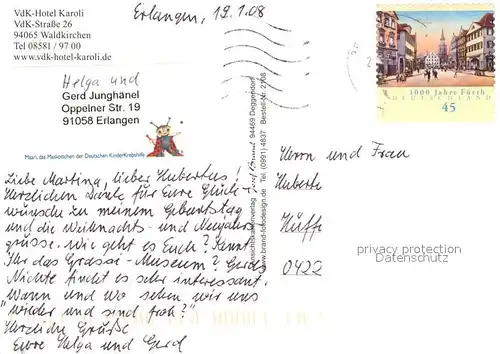 VdK-Hotel Karoli
VdK-Straße 26
94065 Waldkirchen
Tel 08581 / 97 00
www.vdk-hotel-karoli.de
Erlangen, 19.1.08
1000 Jahre Fürth
DEUTSCHLAND
45
Helga und
Gerd Junghänel
Oppelner Str. 19
91058 Erlangen
Maari, das Maskottchen der Deutschen KinderKrebshilfe
Liebe Martina, lieber Hubertus!
Herzlichen Dank für Eure Glück-
wünsche zu meinem Geburtstag
und die Weihnachts- und Neujahrs-
grüsse. Wie geht es Euch? Kennt
Ihr das Grassi-Museum? Gerds
Nichte findet es sehr interessant.
Wann und wo sehen wir uns
"wieder und sind froh?"
Herzliche Grüße
Eure Helga und Gerd
Ansichtskartenverlag Josef Brand 94469 Deggendorf
www.brand-fotodesign.de Tel. (0991) 4837 Bestell-Nr. 2108
Herrn und Frau
Huberte
Hüffe
0422
privacy protection
Datenschutz